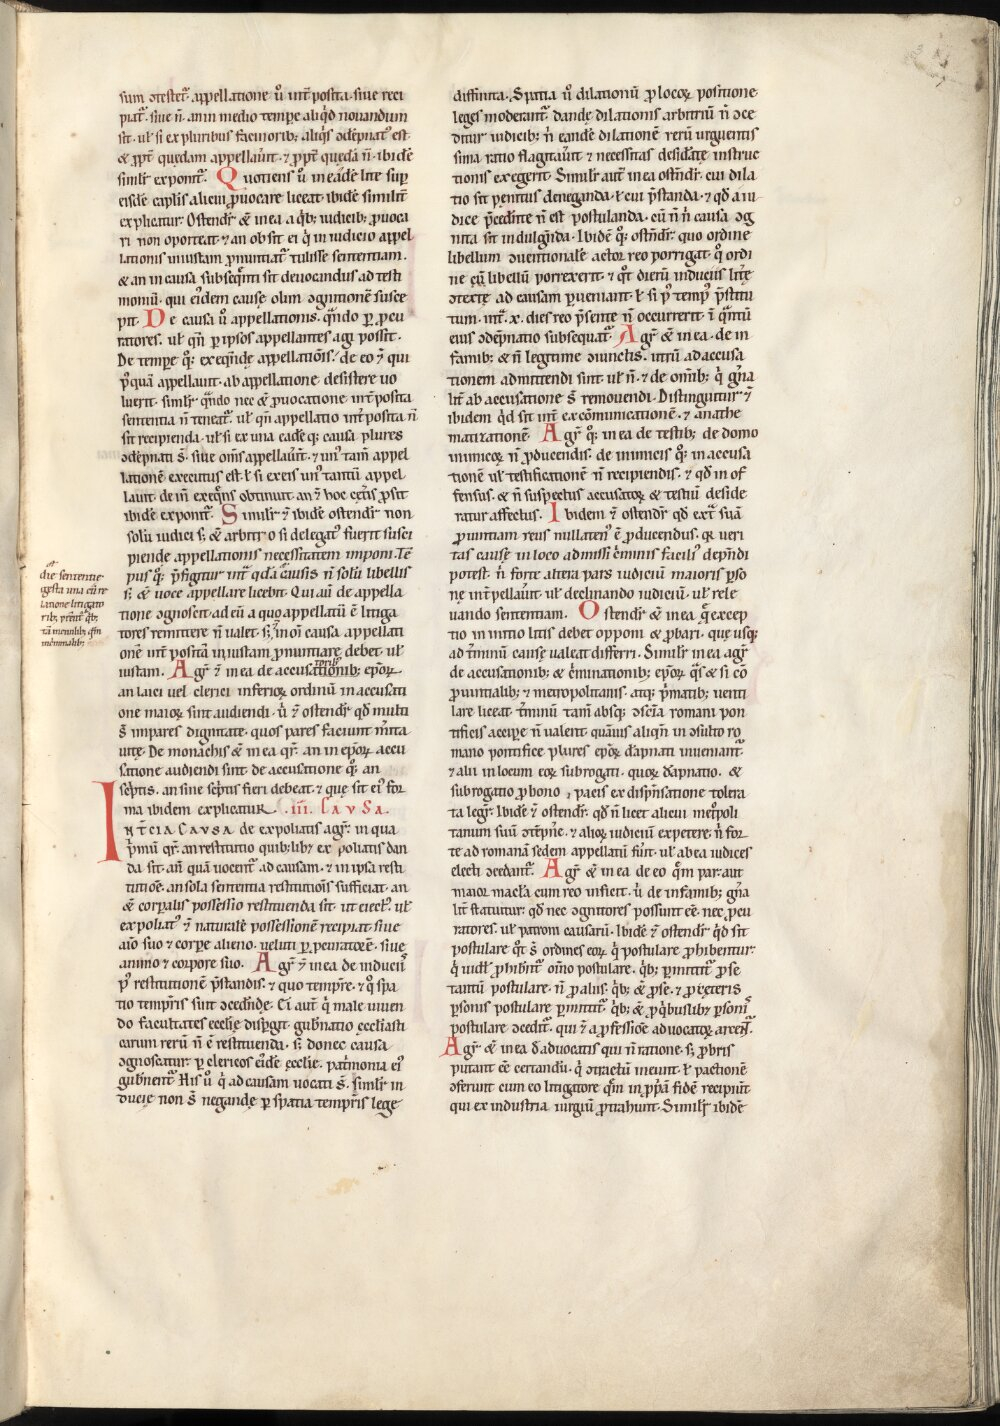 sum ↄtestet᷒. appellatione ů int̄ posita. siue reci
piat᷒. siue n̄. an in medio tempe aliq̇d nouandum
sit. ul̓ si ex pluribus facinorib; aliq̇s ↄdēpnat᷒ est.
& ꝓpt̄ quędam appellau̅t. ⁊ ꝓpt̄ quędā n̄. ibidē
simil̓r exponit᷒. Quotiens ů in eadē lite sup̄
eisdē capl̓is alicui ꝓuocare liceat. ibidē similit̄
explicatur. Ostendit᷒ & in ea a q̇b; iudicib; ꝓuoca
ri non oporteat. ⁊ an obsit ei q̇ in iudicio appel
lationis iniustam ꝓnuntiat᷒ tulisse sententiam.
& an in causa subseq̄nti sit deuocandus ad testi
moniū. qui eidem cause olim ↄgnitionē susce
pit. De causa ů appellationis. q̄ndo ꝑ ꝓcu
ratores. ul̓ q̄n̄ ꝑ ipsos appellantes agi possit.
De tempe q̊; exeq̄ndę appellatiōis. de eo ⁊ qui
p᷒quā appellauit. ab appellatione desistere uo
luerit. simil̓r q̄ndo nec & ꝓuocatione int̄ posita
sententia n̄ teneat᷒. ul̓ q̄n appellatio int̄ posita n̄
sit recipienda. ul̓ si ex una eadēq; causa plures
ↄdēpnati s̄. siue om̄s appellaūt. ⁊ un᷒ tam̄ appel
lationē executus est. ł si ex eis un᷒ tantū appel
lauit. de ini̅ exeq̄ns obtinuit. an ⁊ hoc cet̄is ꝓsit
ibidē exponit᷒. Simil̓r ⁊ ibidē ostendit᷒ non
solū iudici s; & arbitrio si delegat᷒ fuerit susci
piende appellationis necessitatem imponi. Tē
pus q̊; p̄figitur int̄ qd̓ ī causis n̄ solū libellis
s; & uoce appellare licebit. Qui aū de appella
tione ↄgnoscit ad eū a quo appellatū ē litiga
tores remittere n̄ ualet. s; in oi̅ causa appellati
onē int̄ positā iniustam ꝓnuntiare debet. ul̓
iustam. Agit᷒ ⁊ in ea de accusationib; ep̄oꝝ.
an laici uel clerici inferioꝝ ordinū in accusati
one maioꝝ sint audiendi. ů ⁊ ostendit᷒ qd̓ multi
s̄ impares dignitate. quos pares faciunt m̄ita
uite. De monachis & in ea qr̄. an in ep̄oꝝ accu
satione audiendi sint. de accusatione q̊; an
in sc̄ptis. an sine sc̄ptis fieri debeat. ⁊ que sit ei᷒ for
ma ibidem explicatur. .iii. Cavsa.
Int̄cia Cavsa de expoliatis agit᷒. in qua
p̄mū qr̄. an restitutio quib;lib; expoliatis dan
da sit. an̄ quā uocent᷒ ad causam. ⁊ in ipsa resti
tutiōe. an sola sententia restitutiōis sufficiat. an
& corp̄alis possessio restituenda sit. ut eiect᷒. ul̓
expoliat᷒ ⁊ naturalē possessionē recipiat. siue
aīo suo ⁊ corpe alieno. ueluti ꝑ ꝓcuratorē. siue
animo ⁊ corpore suo. Agit᷒ ⁊ in ea de induciis
p᷒ restitutionē p̄standis. ⁊ quo tempre. ⁊ q̊ spa
tio tempris sunt ↄcedende. Ei aut̄ q̇ male uiuen
do facultates ecclie disp̄git. gub̄natio ecclīasti
carum rerū n̄ ē restituenda. s; donec causa
ↄgnoscatur. ꝑ clericos eidē ecclie. pat̄monia ei᷒
gub̄nent᷒. His ů q̇ ad causam uocati s̄. simil̓r in
ducie non s̄ negande. ꝑ spatia tempris lege
die sententie
gesta una cū re
latione litigato
rib; p̄ient᷒. q̊b;
tā in ciuilib; q̄m
in c̄minalib;
diffinita. Spatia ů dilationū ꝓ locoꝝ positione
leges moderant᷒. dande dilationis arbitriū n̄ ↄce
ditur iudicib; n̄ eandē dilationē rerū urguentis
sima ratio flagitaūt ⁊ necessitas desid̓ate instruc
tionis exegerit. Simil̓r aut̄ in ea ostendit᷒. cui dila
tio sit penitus deneganda. ł cui p̄standa. ⁊ qd̓ a iu
dice p̄cedente n̄ est postulanda. cū n̄ n̄ causa ↄg
nita sit indulgenda. Ibidē q̊; ostendit᷒. quo ordine
libellum ↄuentionalē actor reo porrigat. q̊ ordi
ne eū libellū porrexerit. ⁊ q̊t dierū induciis lite
ↄtexte ad causam ꝑueniant. ł si p᷒ temp᷒ p̄stitu
tum. int̄ .x. dies reo p̄sente n̄ occurrerit. ī q̄ntū
eius ↄdēpnatio subsequat᷒. Agit᷒ & in ea. de in
famib; & n̄ legitime ↄiunctis. utrū ad accusa
tionem admittendi sint ul̓ n̄. ⁊ de omīb; q̇ gn̄a
lit̄ ab accusatione s̄ remouendi. Distinguitur &
ibidem q̇d sit int̄ excōmunicationē. ⁊ anathe
matizationē. Agit᷒ q̊; in ea de testib; de domo
inimicoꝝ n̄ ꝓducendis. de inimicis q̊; in accusa
tionē ul̓ testificationē n̄ recipiendis. ⁊ qd̓ in of
fensus. & n̄ suspectus accusatoꝝ & testiū deside
ratur affectus. Ibidem ⁊ ostendit᷒ qd̓ ext̄ suā
ꝓuintiam reus nullaten᷒ ē ꝓducendus. q̄ ueri
tas cause in loco admissi c̄minis facili᷒ dep̄ndi
potest. n̄ forte altera pars iudiciū maioris pso
ne int̄pellaūit. ul̓ declinando iudiciū. ul̓ rele
uando sententiam. Ostendit᷒ & in ea q̄ excep
tio in initio litis debet opponi & ꝓbari. que usq;
ad t̄minū cause ualeat differri. Simil̓r in ea agit᷒
de accusationib; & c̄minationib; ep̄oꝝ q̄s & si cō
ꝓuintialib; ⁊ metropolitanis. atq; p̄matib; uenti
lare liceat. t̄minū tam̄ absq; ↄsc̄ia romani pon
tificis accipe n̄ ualent. quāuis aliq̄n in ↄsulto ro
mano pontifice plures ep̄oꝝ dāpnati inueniant᷒.
⁊ alii in locum eoꝝ subrogati. quoꝝ dāpnatio. &
subrogatio ꝓ bono pacis ex disp̄nsatione tolera
ta legit᷒. Ibidē ⁊ ostendit᷒. qd̓ n̄ licet alicui met̓poli
tanum suū ↄtēpne. ⁊ alioꝝ iudiciū expetere. n̄ for
te ad romanā sedem appellatū fūit. ul̓ ab ea iudices
electi ↄcedant᷒. Agit᷒ & in ea de eo q̄m par aut
maior macl̓a cum reo inficit. ů de infamib; gn̄a
lit̄ statuitur. qd̓ nec ↄgnitores possunt ēē. nec ꝓcu
ratores. ul̓ patroni causarū. Ibidē ⁊ ostendit᷒ q̇d sit
postulare. q̊t s̄ ordines eoꝝ q̇ postulare ꝓhibentur.
q̇ uidl̓ ꝓhibnt᷒ om̄o postulare. q̇b; ꝑmittit᷒ ꝓ se
tantū postulare. n̄ ꝓ aliis. q̇b; & ꝓ se. ⁊ ꝓ cęteris
ꝑsonis postulare ꝑmittit᷒. q̇b; & ꝓ q̇buslib; ꝑsonis
postulare ↄcedit᷒. qui ⁊ a ꝓfessiōe aduocatoꝝ arcent᷒.
Agit᷒ & in ea d̓ aduocatis qui n̄ ratione. s; ꝓbris
putant ēē certandū. q̇ ↄtractū ineunt. ł pactionē
ↄferunt cum eo litigatore q̄m in ꝓpā fidē recipiūt.
qui ex industria iurgiū ꝓtrahunt. Simil̓r ibidē